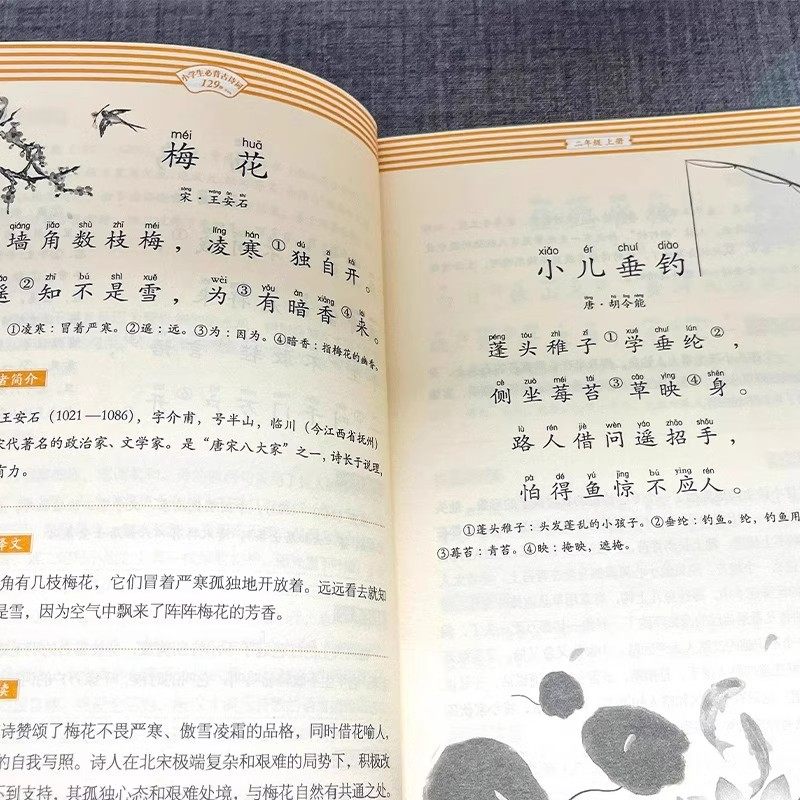 小学生必背古诗词
129
méi huā
梅花
sòng wáng ān shí
宋·王安石
qiáng jiǎo shù zhī méi líng hán dú zì kāi
墙角数枝梅，凌寒①独自开。
zhī bú shì xuě wèi yǒu àn xiāng lái
遥②知不是雪，为③有暗香④来。
①凌寒：冒着严寒。②遥：远。③为：因为。④暗香：指梅花的幽香。
者简介
王安石（1021—1086），字介甫，号半山，临川（今江西省抚州）
宋代著名的政治家、文学家。是“唐宋八大家”之一，诗长于说理，
有力。
译文
角有几枝梅花，它们冒着严寒孤独地开放着。远远看去就知
是雪，因为空气中飘来了阵阵梅花的芳香。
读
诗赞颂了梅花不畏严寒、傲雪凌霜的品格，同时借花喻人，
的自我写照。诗人在北宋极端复杂和艰难的局势下，积极改
不到支持，其孤独心态和艰难处境，与梅花自然有共通之处。
二年级 上册
xiǎo ér chuí diào
小儿垂钓
táng hú lìng néng
唐·胡令能
péng tóu zhì zǐ xué chuí lún
蓬头稚子①学垂纶②，
cè zuò méi tái cǎo yìng shēn
侧坐莓苔③草映④身。
lù rén jiè wèn yáo zhāo shǒu
路人借问遥招手，
pà dé yú jīng bú yìng rén
怕得鱼惊不应人。
①蓬头稚子：头发蓬乱的小孩子。②垂纶：钓鱼。纶，钓鱼用
③莓苔：青苔。④映：掩映，遮掩。